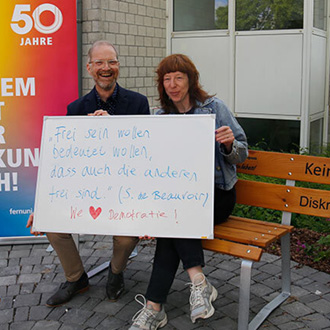 50
JAHRE
„Frei sein wollen
bedeutet wollen,
dass auch die anderen
frei sind." (S. de Beauvoir)
We ❤ Demokratie!
Kein
Diskr
fernuni